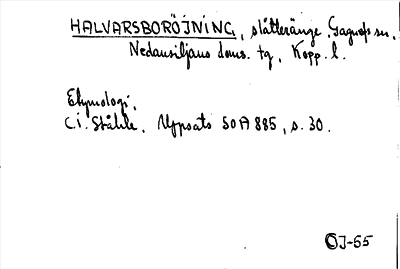 HALVARSBORÖJNING, slåtteränge, Gagnefs sn.
Nedansiljans doms. tg, Kopp. l.
Etymologi.
C.i. Ståhle. Uppsats SOA 885, s. 30.
ÖJ-65